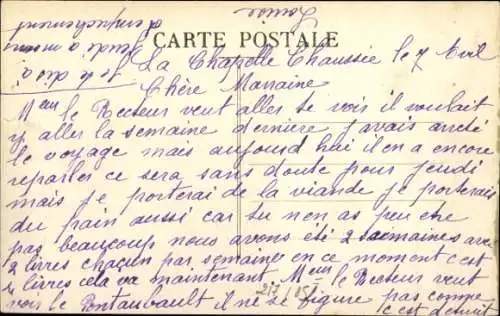 CARTE POSTALE
La Chapelle Chaussée le 7 Avril
Chère Marraine
Meur le Recteur veut aller te voir il voulait
y aller la semaine dernière j'avais arrêté
le voyage mais aujourd hui il en a encore
reparler ce sera sans doute pour jeudi
mais je porterai de la viande je porterais
du pain aussi car tu nen as peu etre
pas beaucoup nous avons été 2 semaines avec
2 livres chaqun par semaine en ce moment c'est
4 livres cela va maintenant Meur le Recteur veut
voir le Pontaubault il ne se figure pas comme
c'est détruit